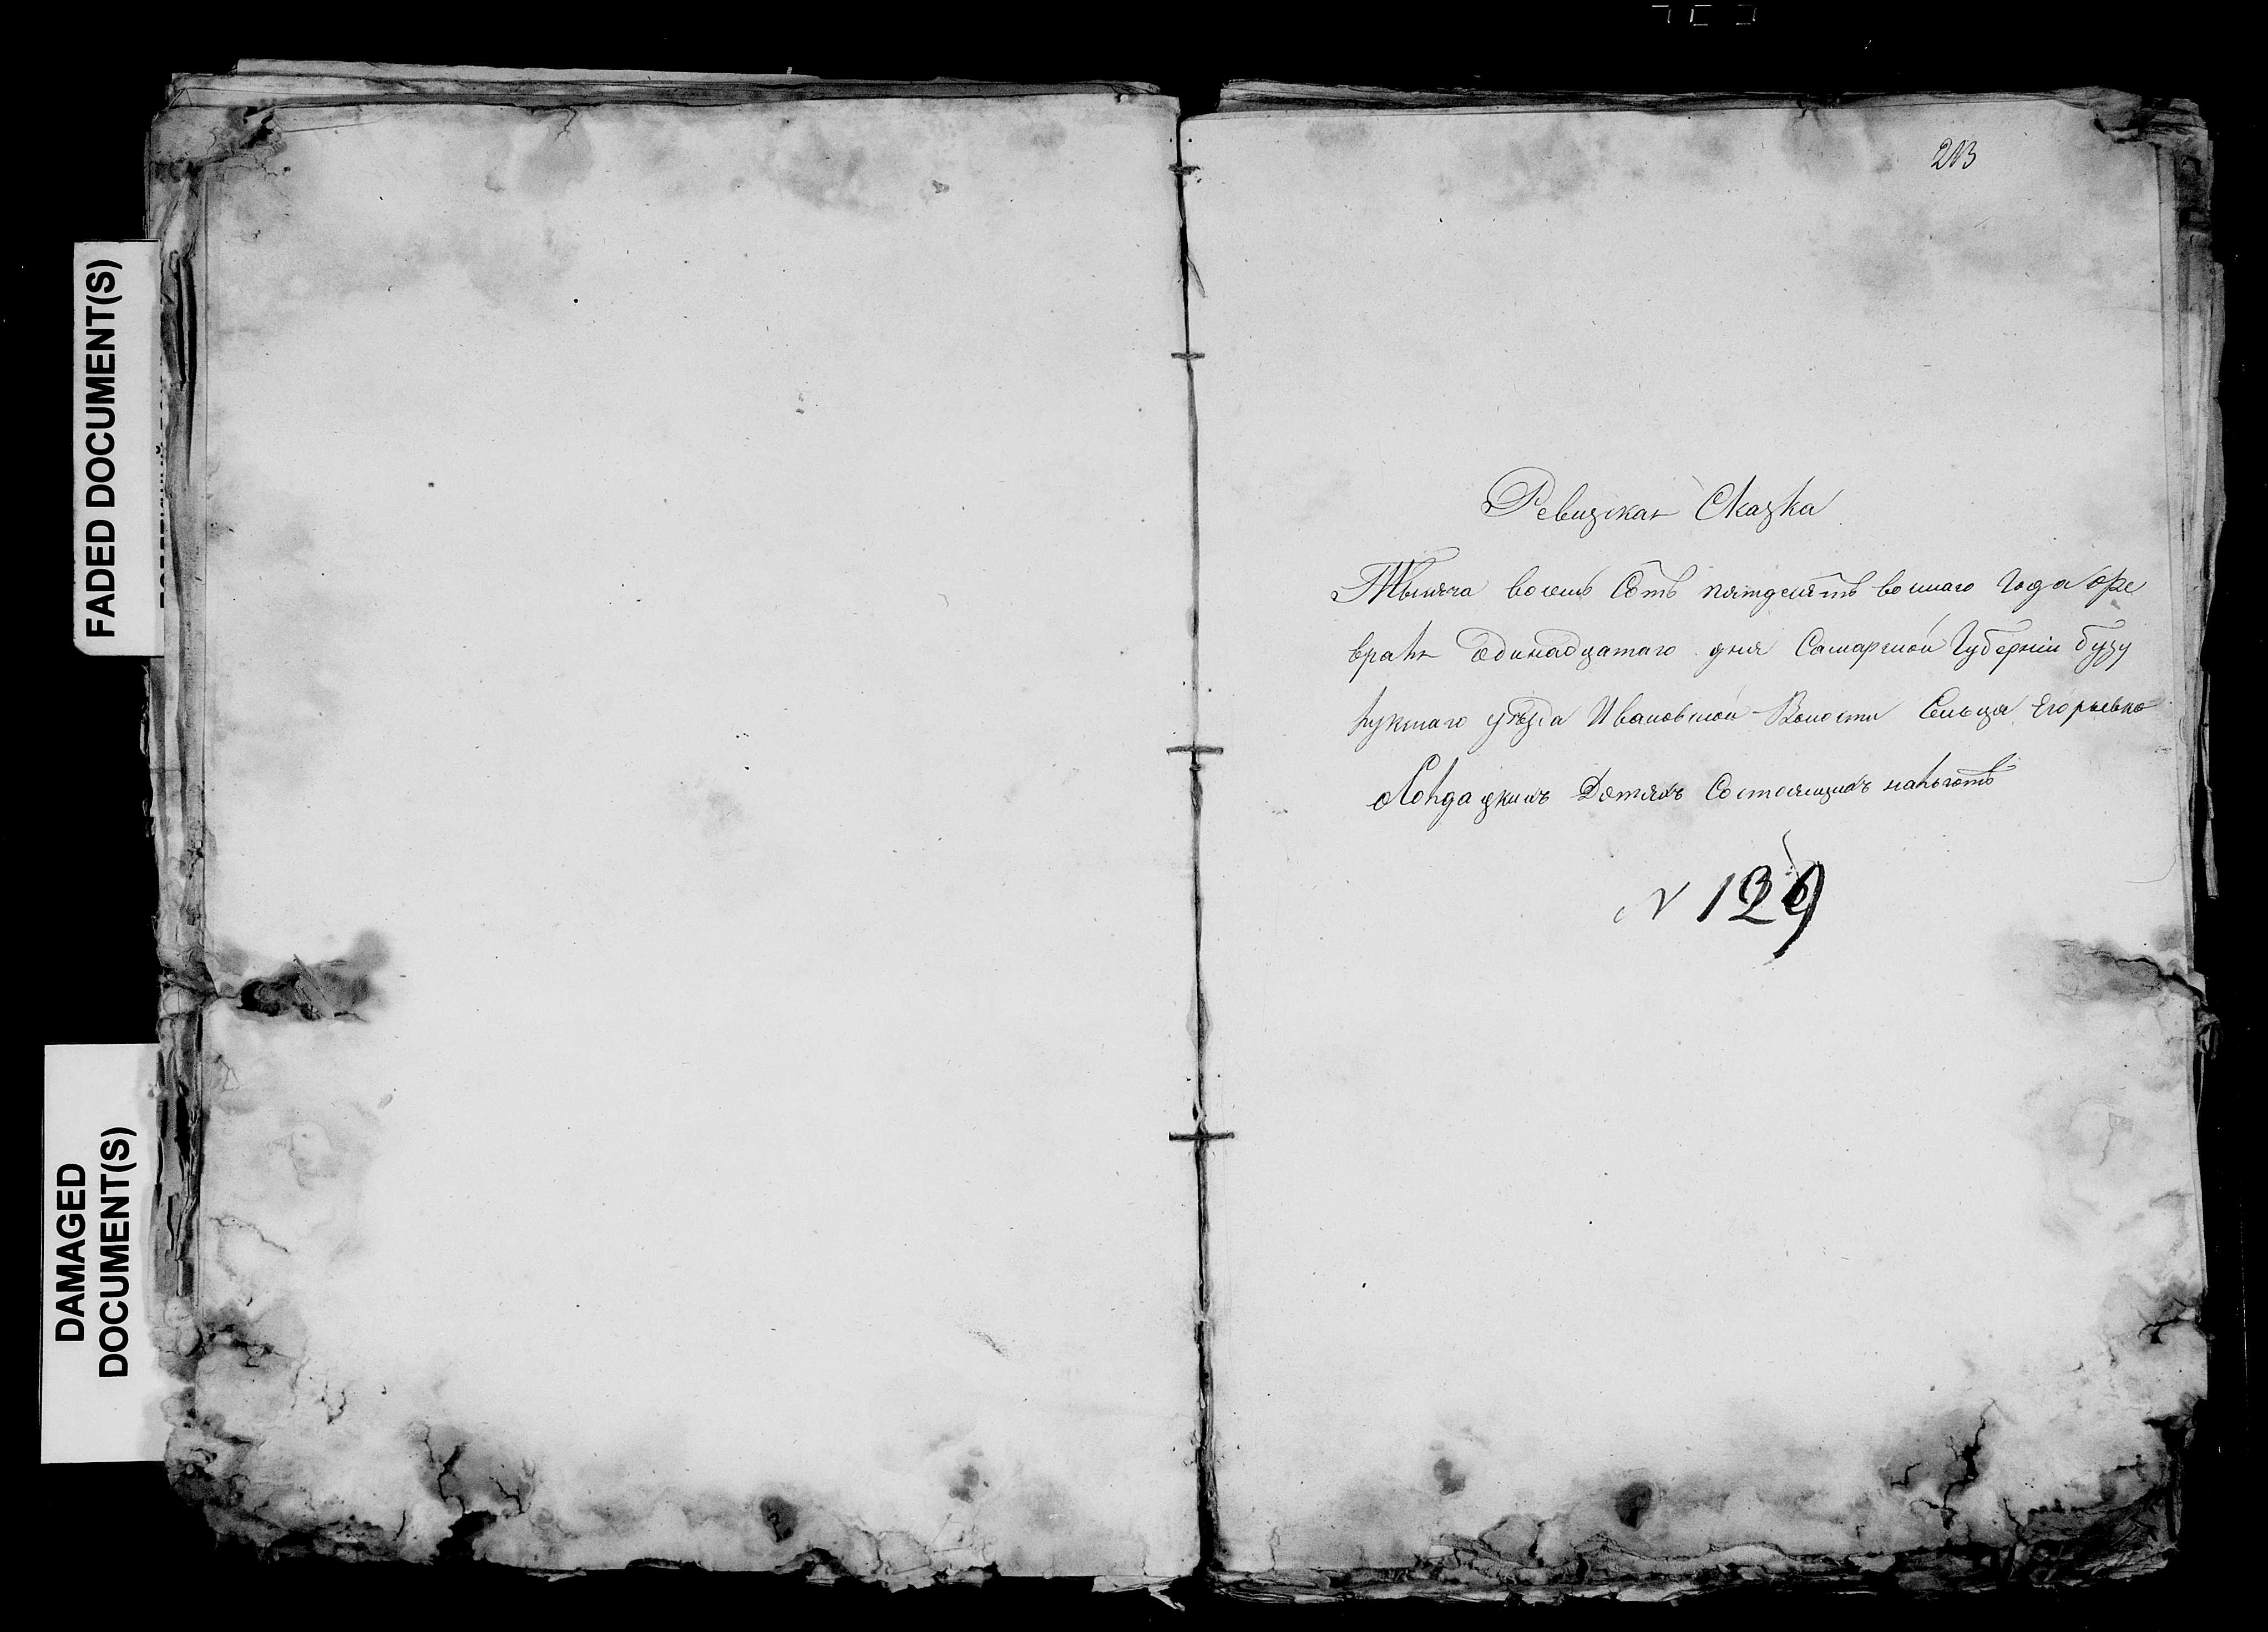 FADED DOCUMENT(S)
DAMAGED
DOCUMENT(S)
Ревизская Сказка
Тысяча восемь Сотъ пятдесятъ восмаго Года фе
враля Одинадцатаго дня Самарской Губерніи бузу
лукскаго уѣзда Ивановской Волости Сельца Егорьевка
Солдацкихъ Дѣтяхъ Состоящихъ
N 129